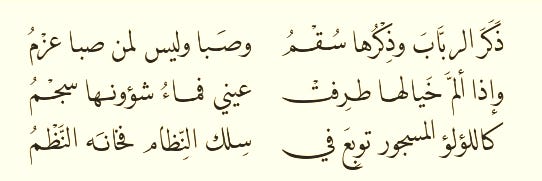 ذَكَرَ الربَّابَ وذِكْرُها سُقْمُ وصَبا وليس لمن صبا عزْمُ
وإذا ألمَّ خَيالها طرِفتْ عيني فماءُ شؤونها سجْمُ
كاللؤلؤ المسجور توبِعَ في سِلك النِّظام فخانه النَّظْمُ